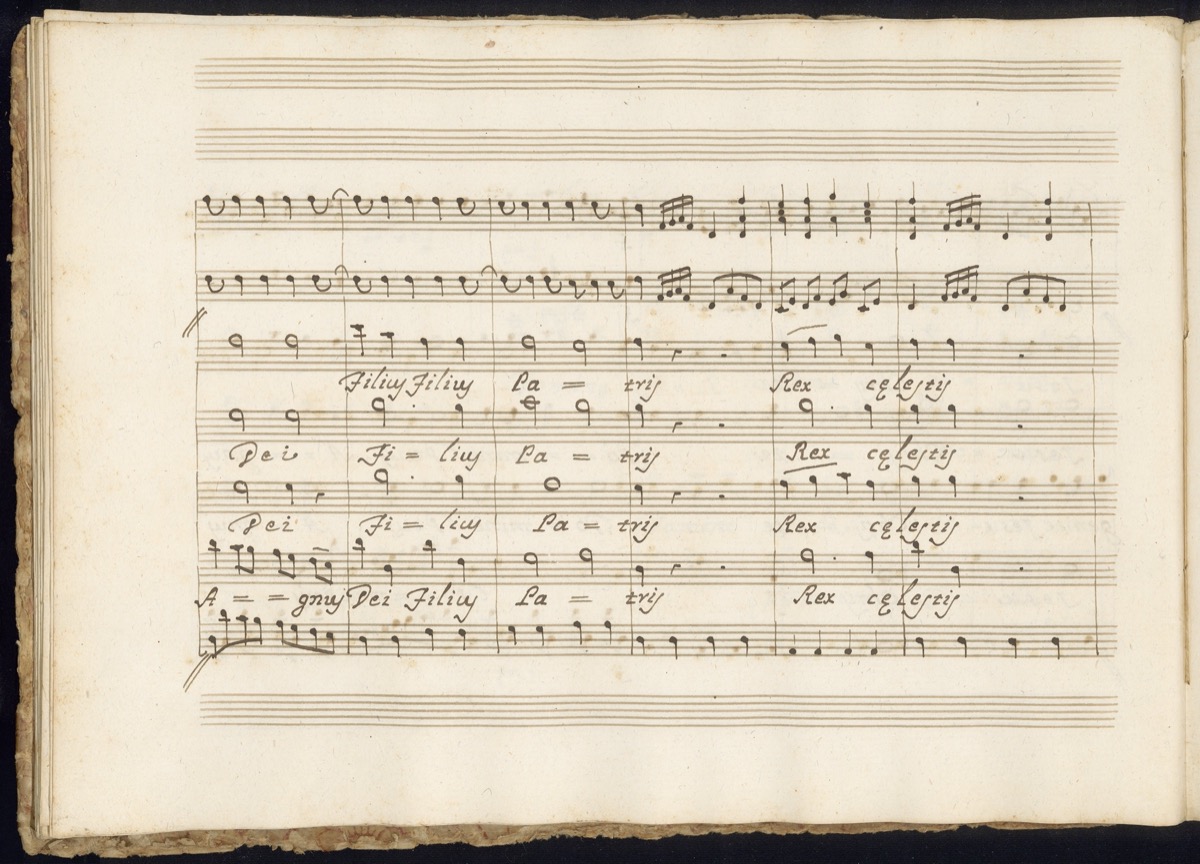 Filiuſ Filiuſ Pa = triſ Rex cęleſtiſ
Dei Fi = liuſ Pa = triſ Rex cęleſtiſ
Dei Fi = liuſ Pa = triſ Rex cęleſtiſ
A = = gnuſ Dei Filiuſ Pa = triſ Rex cęleſtiſ